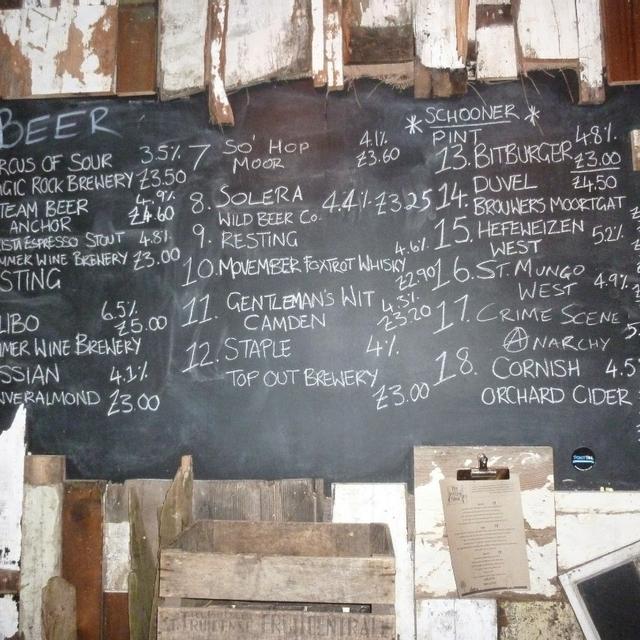 BEER
RCUS OF SOUR 3.5%
GIC ROCK BREWERY £3.50
TEAM BEER 4.9%
ANCHOR £4.60
ESPRESSO STOUT 4.8%
MMER WINE BREWERY £3.00
STING
LIBO 6.5%
£5.00
MER WINE BREWERY
SSIAN 4.1%
NVERALMOND £3.00
7 SO' HOP 4.1%
MOOR £3.60
8. SOLERA 4.4% £3.25
WILD BEER CO.
9. RESTING
10. MOVEMBER FOXTROT WHISKY 4.6%
£2.90
11. GENTLEMAN'S WIT 4.3%
CAMDEN £3.20
12. STAPLE 4%
TOP OUT BREWERY
£3.00
* SCHOONER *
PINT
13. BITBURGER 4.8%
£3.00
14. DUVEL £4.50
BROUWERS MOORTGAT
15. HEFEWEIZEN 5.2%
WEST
16. ST MUNGO 4.9%
WEST
17. CRIME SCENE
ANARCHY
18. CORNISH 4.5
ORCHARD CIDER